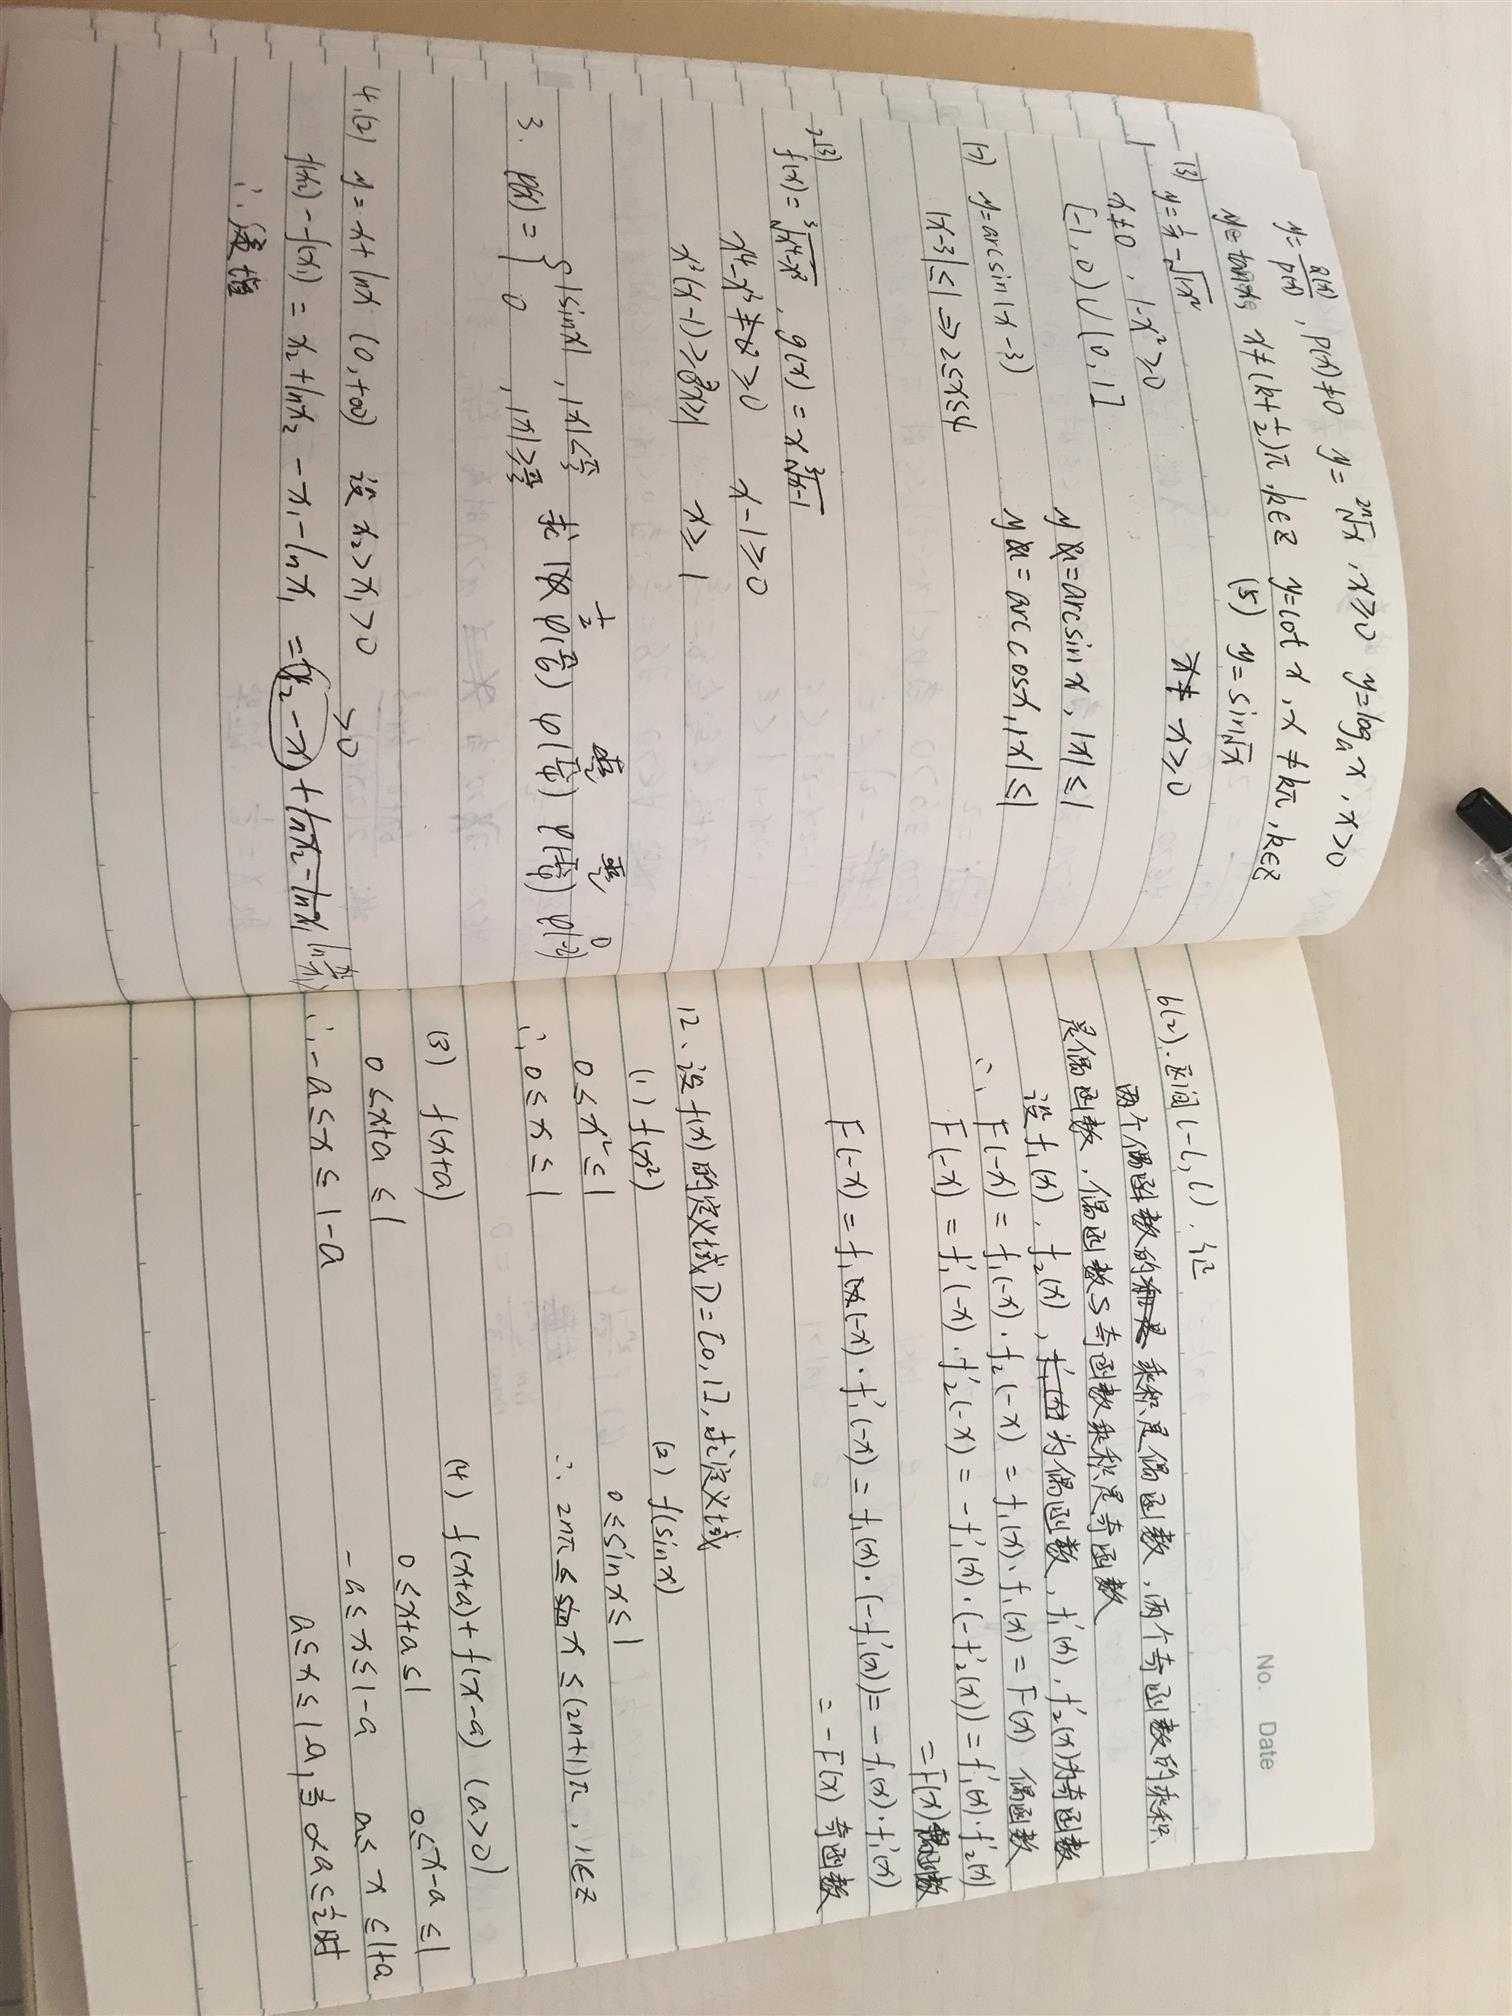 y=Q(x)/P(x), P(x)≠0 y=²ⁿ√x, x≥0 y=logₐx, x>0
y=tanx, x≠(k+1/2)π, k∈Z y=cotx, x≠kπ, k∈Z
(3) y=1/x-√(1-x²) (5) y=sin√x
x≠0, 1-x²≥0 x≥0
[-1,0)∪(0,1]
y=arcsinx, |x|≤1
(7) y=arcsin(x-3) y=arccosx, |x|≤1
|x-3|≤1⇒2≤x≤4
2(3) f(x)=³√(x⁴-x³), g(x)=x³√(x-1)
x⁴-x³≥0 x-1≥0
x³(x-1)≥0 x≥1
3. φ(x)={|sinx|, |x|<π/3
0, |x|≥π/3 求 φ(π/6) φ(π/4) φ(-π/4) φ(-2)
1/2 √2/2 √2/2 0
4.(2) y=x+lnx (0,+∞) 设x₂>x₁>0
f(x₂)-f(x₁)=x₂+lnx₂-x₁-lnx₁=(x₂-x₁)+ln(x₂/x₁)
>0
∴ 递增
No. Date
6(2).区间(-l,l).证
两个偶函数的乘积是偶函数,两个奇函数的乘积
是偶函数,偶函数与奇函数乘积是奇函数
设f₁(x),f₂(x)为偶函数,f₁'(x),f₂'(x)为奇函数
∴F(-x)=f₁(-x)·f₂(-x)=f₁(x)·f₁(x)=F(x) 偶函数
F(-x)=f₁'(-x)·f₂'(-x)=-f₁'(x)·(-f₂'(x))=f₁'(x)·f₂'(x)
=F(x)偶函数
F(-x)=f₁(-x)·f₁'(-x)=f₁(x)·(-f₁'(x))=-f₁(x)·f₁'(x)
=-F(x)奇函数
12、设f(x)的定义域D=[0,1],求定义域
(1) f(x²) (2) f(sinx)
0≤x²≤1 0≤sinx≤1
∴0≤x≤1 ∴2nπ≤x≤(2n+1)π, n∈Z
(3) f(x+a) (4) f(x+a)+f(x-a) (a>0)
0≤x+a≤1 0≤x+a≤1 0≤x-a≤1
∴-a≤x≤1-a -a≤x≤1-a a≤x≤1+a
a≤x≤1-a,当a≤1/2时